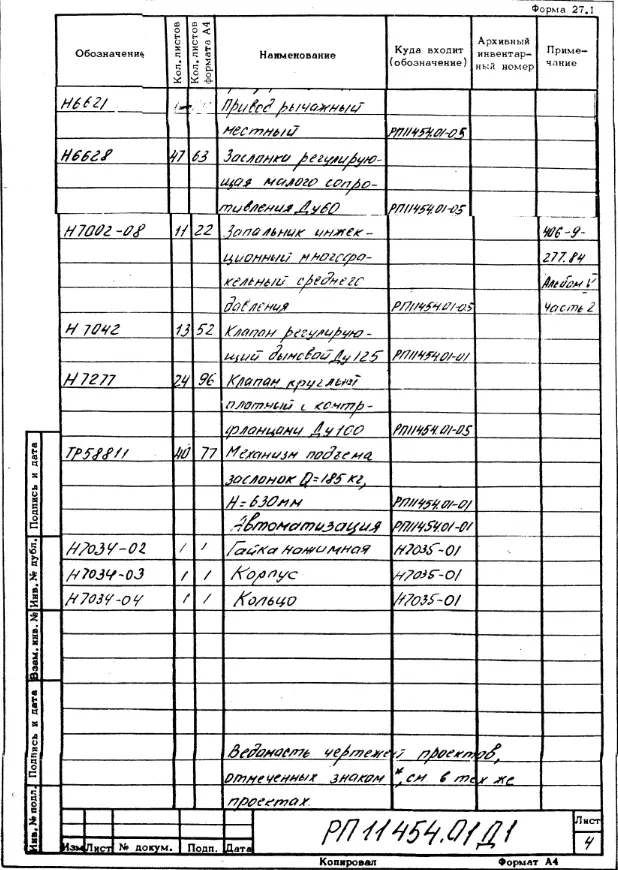 Форма 27.1
Обозначение Кол. листов Кол. листов формата А4 Наименование Куда входит (обозначение) Архивный инвентарный номер Примечание
Н6621 Привод рычажный
местный РП11454.01-05
Н6628 47 63 Заслонка регулирую-
щая малого сопро-
тивления Ду60 РП11454.01-05
Н7002-08 11 22 Запальник инжек- 406-9-
ционный многофа- 277.84
кельный среднего Альбом V
давления РП11454.01-05 часть 2
Н 7042 13 52 Клапан регулирую-
щий дымовой Ду125 РП11454.01-01
Н7277 24 96 Клапан круглый
плотный с контр-
фланцами Ду100 РП11454.01-05
ТР58811 40 77 Механизм подъема
заслонок Q=185 кг,
Н=630мм РП11454.01-01
Автоматизация РП11454.01-01
Н7034-02 1 1 Гайка нажимная Н7035-01
Н7034-03 1 1 Корпус Н7035-01
Н7034-04 1 1 Кольцо Н7035-01
Ведомость чертежей проектов,
отмеченных знаком *, см в тех же
проектах.
Инв. № подл. Подпись и дата Взам. инв. № Инв. № дубл. Подпись и дата
РП11454.01Д1 Лист
4
Изм Лист № докум. Подп. Дата
Копировал Формат А4